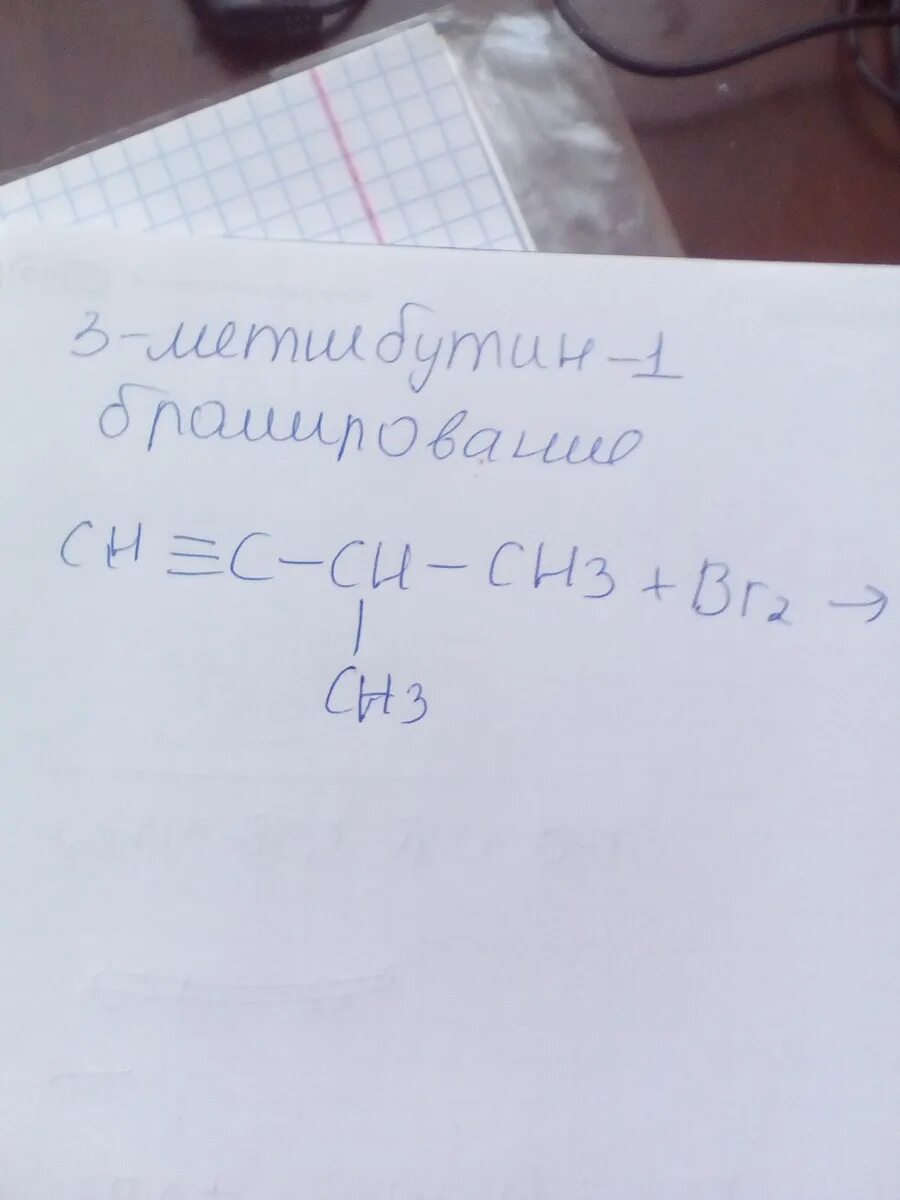 3-метилбутин-1
бромирование
CH≡C-CH-CH3 + Br2 →
|
CH3